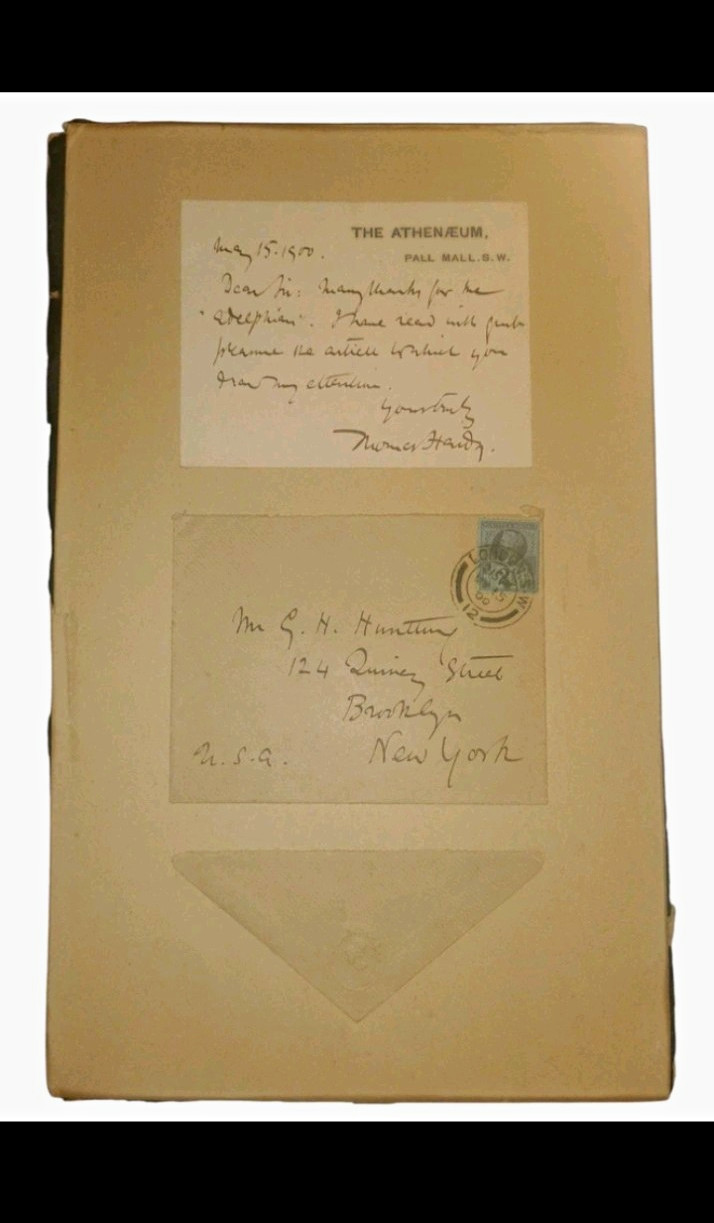 THE ATHENÆUM,
PALL MALL. S. W.
May 15. 1900.
Dear Sir: Many thanks for the
"Adelphian". I have read with great
pleasure the article to which you
draw my attention.
Yours truly
Thomas Hardy.
LONDON S.W
MY 15
00
12
Mr G. H. Hunting
124 Quincy Street
Brooklyn
New York
U.S.A.